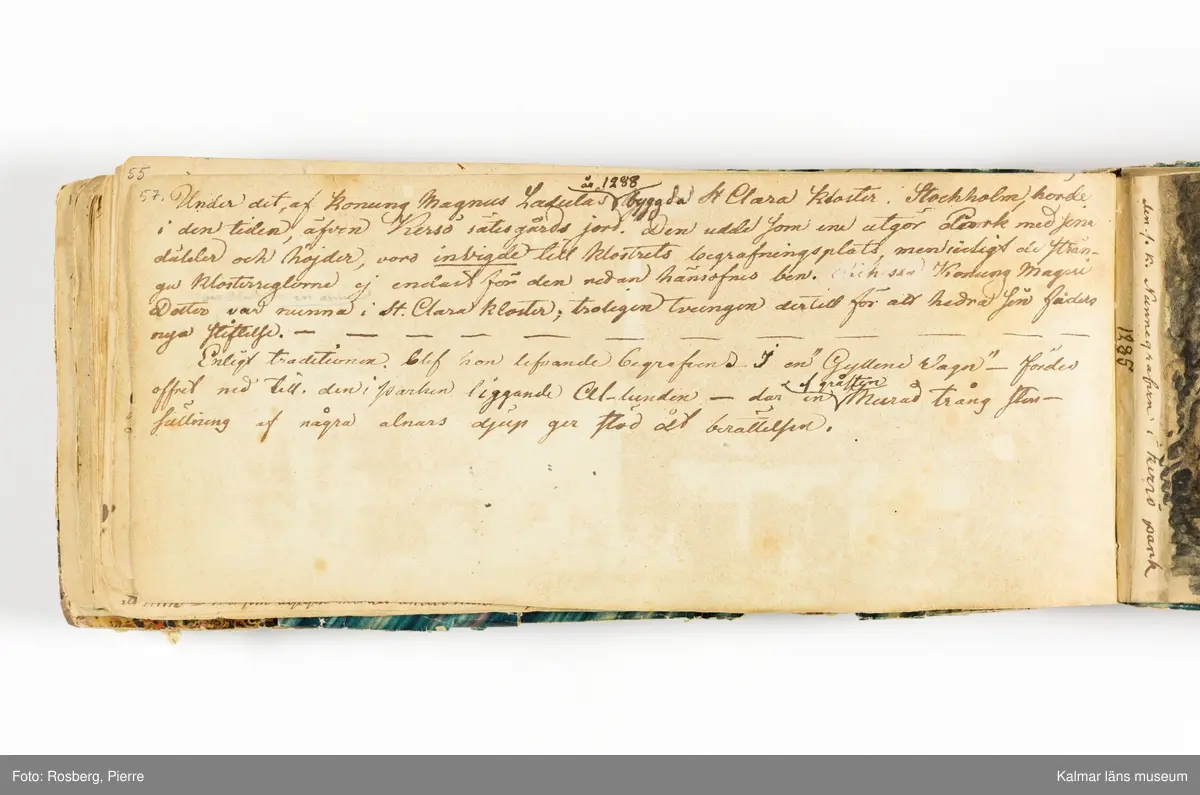 55
57. Under det, af Konung Magnus Ladulås år 1288 byggda St Clara Kloster i Stockholm, hörde
i den tiden, äfven Kersö sätesgårds jord. Den udde som nu utgör Park med sina
dälder och höjder, voro invigde till klostrets begrafningsplats, men enligt de strän-
ga Klosterreglorne ej endast för den redan hänsofnes ben. Konung Magni
Dotter var nunna i St. Clara Kloster; troligen tvungen dertill för att hedra sin faders
nya stiftelse. — — — — — — — —
Enligt traditionen, blef hon lefvande begrafven. — I en "Gyllene Vagn" — fördes
offret ned till den i parken liggande Al-lunden — der en af gråsten Murad trång sten-
sättning af några alnars djup ger stöd åt berättelsen.
Nunnegrafven i Kersö park
1288
Foto: Rosberg, Pierre
Kalmar läns museum